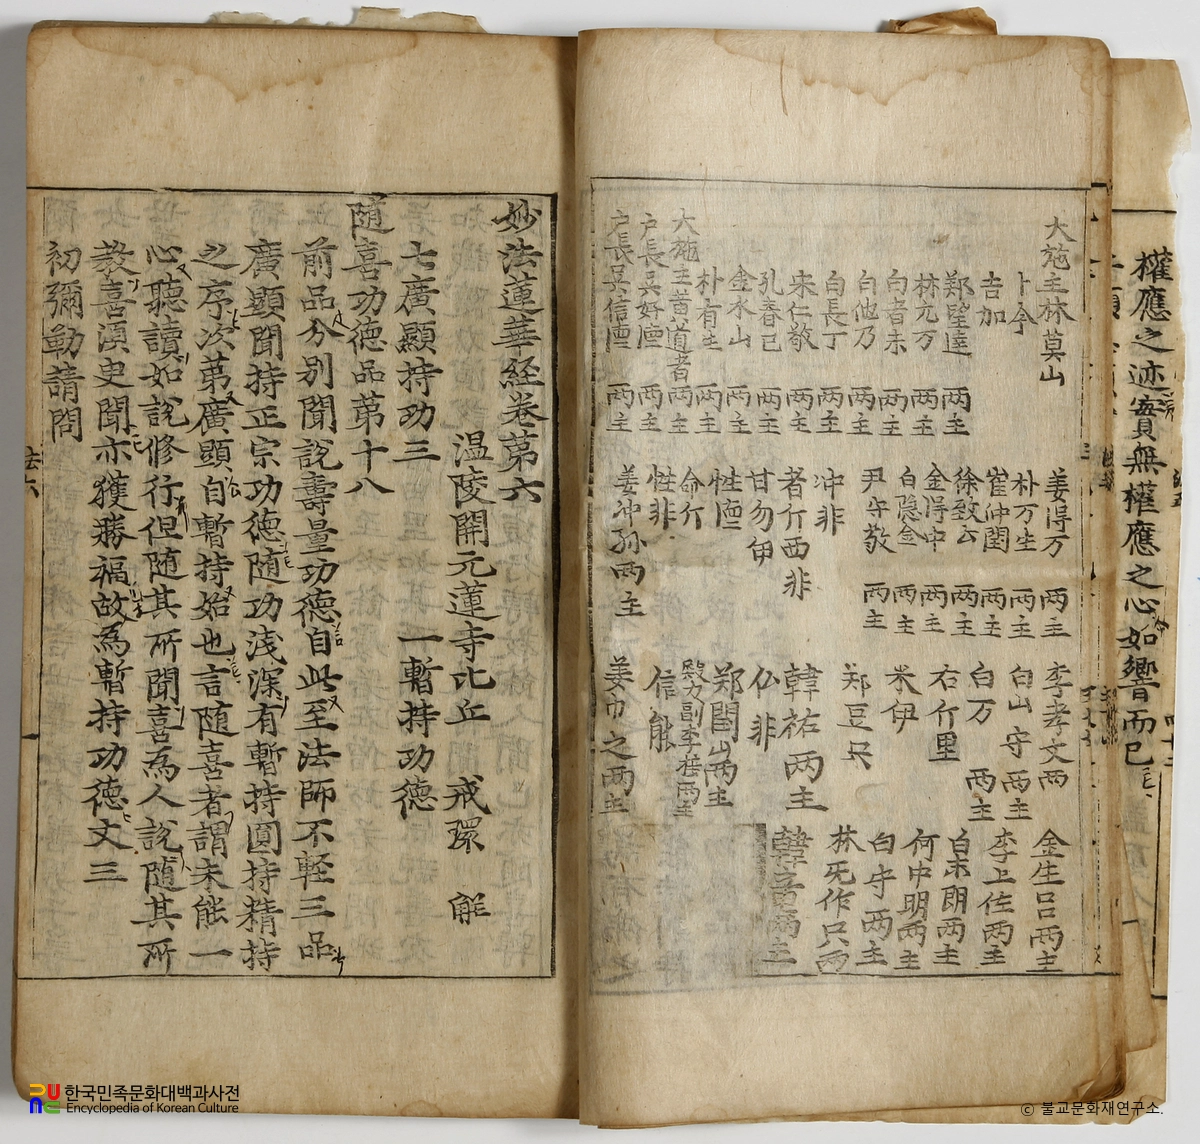 權應之迹實無權應之心如響而已
大施主林莫山
卜今
吉加
鄭
林元万 两主
白者未 两主
白他乃 两主
白長丁 两主
宋仁敬 两主
孔春己 两主
金水山 两主
朴有生 两主
大施主 道者 两主
户長吳好 两主
户長吳信 两主
姜得万 两主
朴万生 两主
崔仲閏 两主
徐致云 两主
金得中 两主
白隱金 两主
尹守敬 两主
冲非
者斤西非
甘勿伊
性
命斤
性非
姜冲孫两主
李孝文两
白山守两主
白万 两主
右斤里
米伊
郑豆只
韓祐两主
仏非
郑閏山两主
副李 两主
信能
姜巾之两主
金生呂两主
李上佐两主
白宋朗两主
何中明两主
白守两主
林死作只两
韓 两主
妙法蓮華経卷第六
温陵開元蓮寺比丘 戒環 解
七廣顯持功三 一暫持功德
随喜功德品第十八
前品分別聞說壽量功德自此至法師不軽三品
廣顯聞持正宗功德随功浅深有暫持圓持精持
之序次第廣顯自暫持始也言随喜者謂未能一
心聽讀如說修行但随其所聞喜為人說随其所
教喜湏史聞亦獲勝福故為暫持功德文三
初彌勒請問
法六
한국민족문화대백과사전
Encyclopedia of Korean Culture
ⓒ 불교문화재연구소.